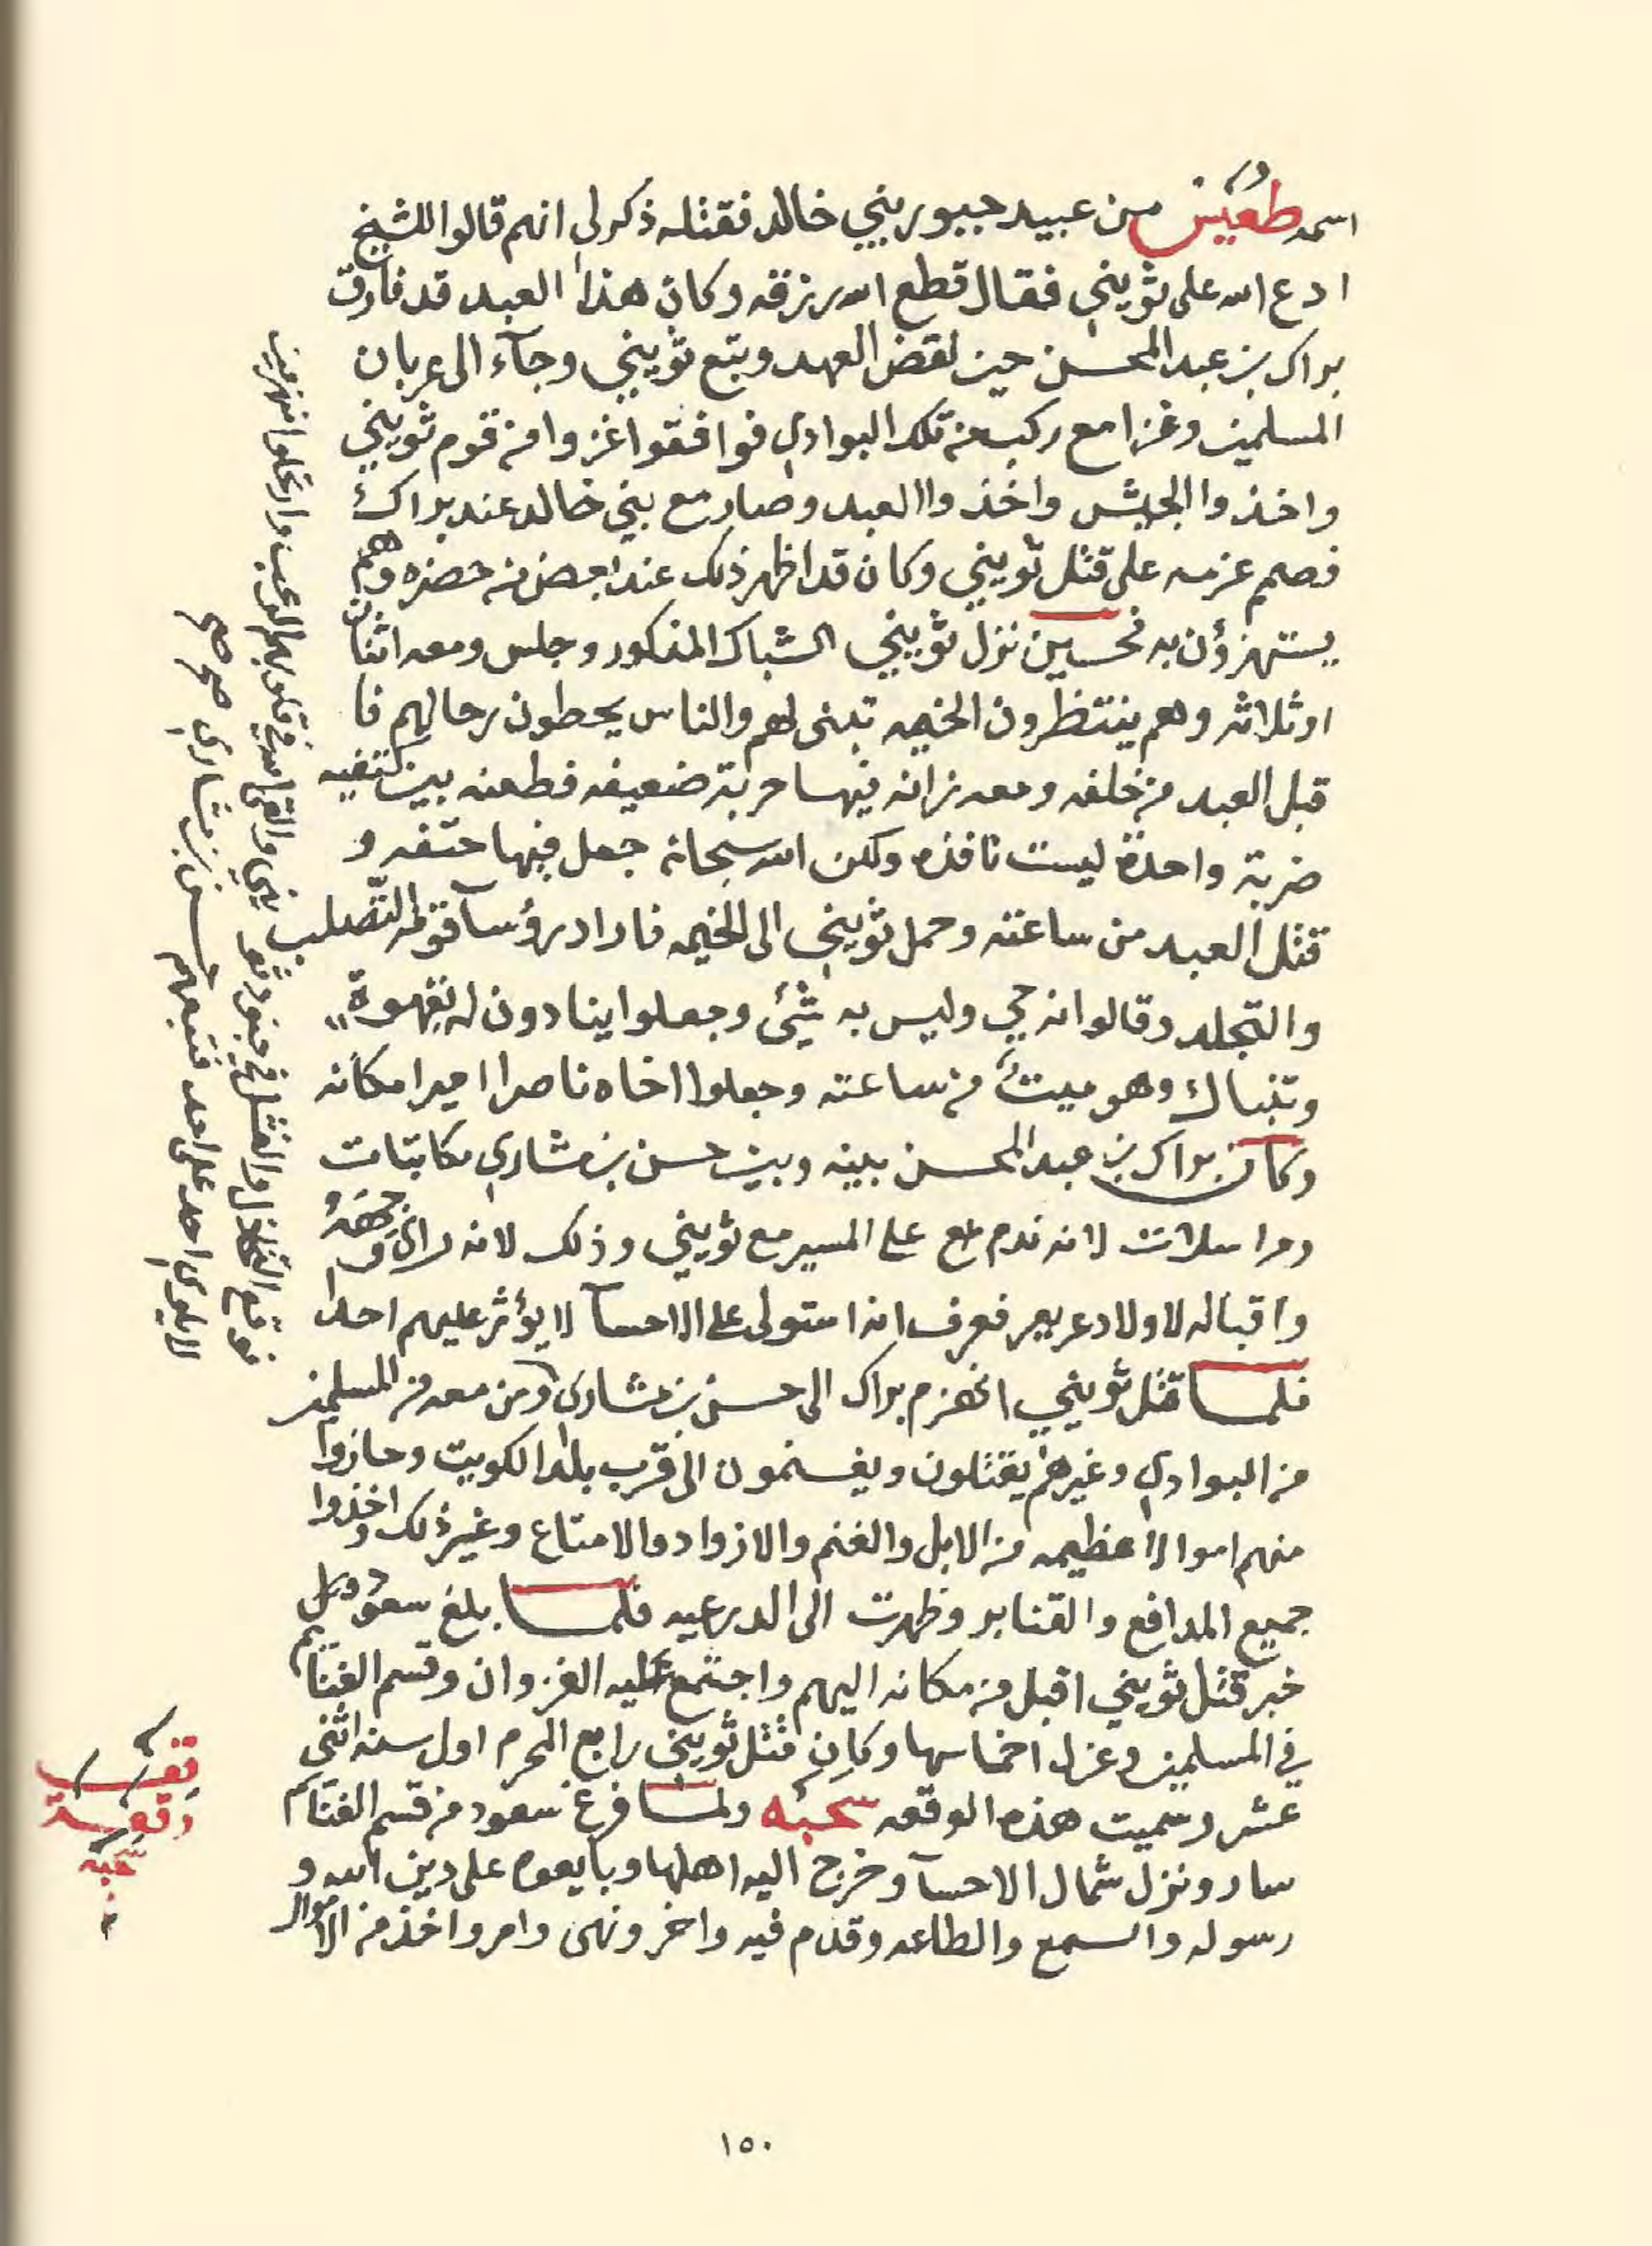 اسمه طعيس من عبيد جبور بني خالد فقتله ذكر لي انهم قالوا للشيخ
ادع الله على ثويني فقال قطع الله رزقه وكان هذا العبد قد فارق
براك بن عبد المحسن حين نقض العهد وتبع ثويني وجآء الى عربان
المسلمين وغزا مع ركب من تلك البوادي فوافقوا غزوا من قوم ثويني
واخذوا الجيش واخذوا العبد وصار مع بني خالد عند براك
فصمم عزمه على قتل ثويني وكان قد اظهر ذلك عند بعض من حضره وهم
يستهزؤن به فحين نزل ثويني الشباك المذكور وجلس ومعه اثنان
او ثلاثه وهم ينتظرون الخيمه تبنى لهم والناس يحطون رحالهم فا
قبل العبد من خلفه ومعه زانه فيها حربة ضعيفه فطعنه بين كتفيه
ضربة واحدة ليست نافذه ولكن الله سبحانه جعل فيها حتفه و
قتل العبد من ساعته وحمل ثويني الى الخيمه فاراد رؤسآ قومه التصلب
والتجلد وقالوا انه حي وليس به شئ وجعلوا ينادون له بقهوة
وتنباك وهو ميت من ساعته وجعلوا اخاه ناصرا اميرا مكانه
وكان براك بن عبد المحسن بينه وبين حسن بن مشاري مكاتبات
ومراسلات لانه ندم على المسير مع ثويني وذلك لانه راى وجهه
واقباله لاولاد عريعر فعرف انه ا ستولى على الاحسآ لا يؤثر عليهم احدا
فلما قتل ثويني انهزم براك الى حسن بن مشاري ومن معه من المسلمين
من البوادي وغيرهم يقتلون ويغنمون الى قرب بلد الكويت وحازوا
منهم اموالا عظيمه من الابل والغنم والازواد والامتاع وغير ذلك واخذوا
جميع المدافع والقنابر وظهرت الى الدرعيه فلما بلغ سعود
خبر قتل ثويني اقبل من مكانه اليهم واجتمع عليه الغزوان وقسم الغنايم
في المسلمين وعزل اخماسها وكان قتل ثويني رابع المحرم اول سنه اثنى
عشر وسميت هذه الوقعه سحبه ولما فرغ سعود من قسم الغنايم
سار ونزل شمال الاحسآ وخرج اليه اهلها وبايعوه على دين الله و
رسوله والسمع والطاعه وقدم فيه واخر ونهى وامر واخذ من الاموال
فوقع التخاذل والفشل في جنود ثويني والقى الله في قلوبهم الرعب وارتحلوا منهزمين
لا يلوي احد على احد فتبعهم حسن بن مشاري صح صح
وقعة
سحبه
١٥٠